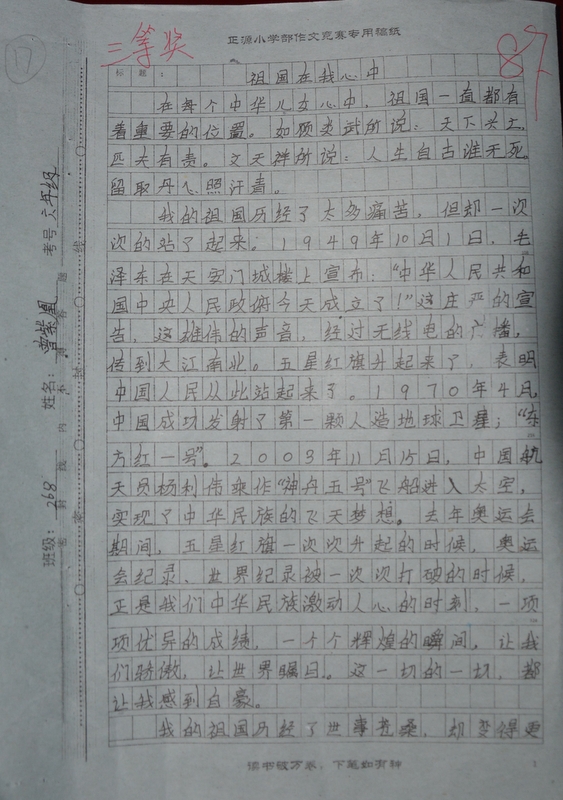 17
三等奖
正源小学部作文竞赛专用稿纸
87
标题：
祖国在我心中
在每个中华儿女心中，祖国一直都有
着重要的位置。如顾炎武所说：天下兴亡
匹夫有责。文天祥所说：人生自古谁无死
留取丹心照汗青。
我的祖国历经了太多痛苦，但却一次
次的站了起来。1949年10月1日，毛
泽东在天安门城楼上宣布："中华人民共和
国中央人民政府今天成立了！"这庄严的宣
告，这雄伟的声音，经过无线电的广播，
传到大江南北。五星红旗升起来了，表明
中国人民从此站起来了。1970年4月
中国成功发射了第一颗人造地球卫星；"东
方红一号"。2003年11月15日，中国航
天员杨利伟乘作"神舟五号"飞船进入太空，
实现了中华民族的飞天梦想。去年奥运会
期间，五星红旗一次次升起的时候，奥运
会纪录、世界纪录被一次次打破的时候，
正是我们中华民族激动人心的时刻，一项
项优异的成绩，一个个辉煌的瞬间，让我
们骄傲，让世界瞩目。这一切的一切，都
让我感到自豪。
我的祖国历经了世事苍桑，却变得更
读书破万卷，下笔如有神
1
班级：268
姓名：曹
考号 六年级